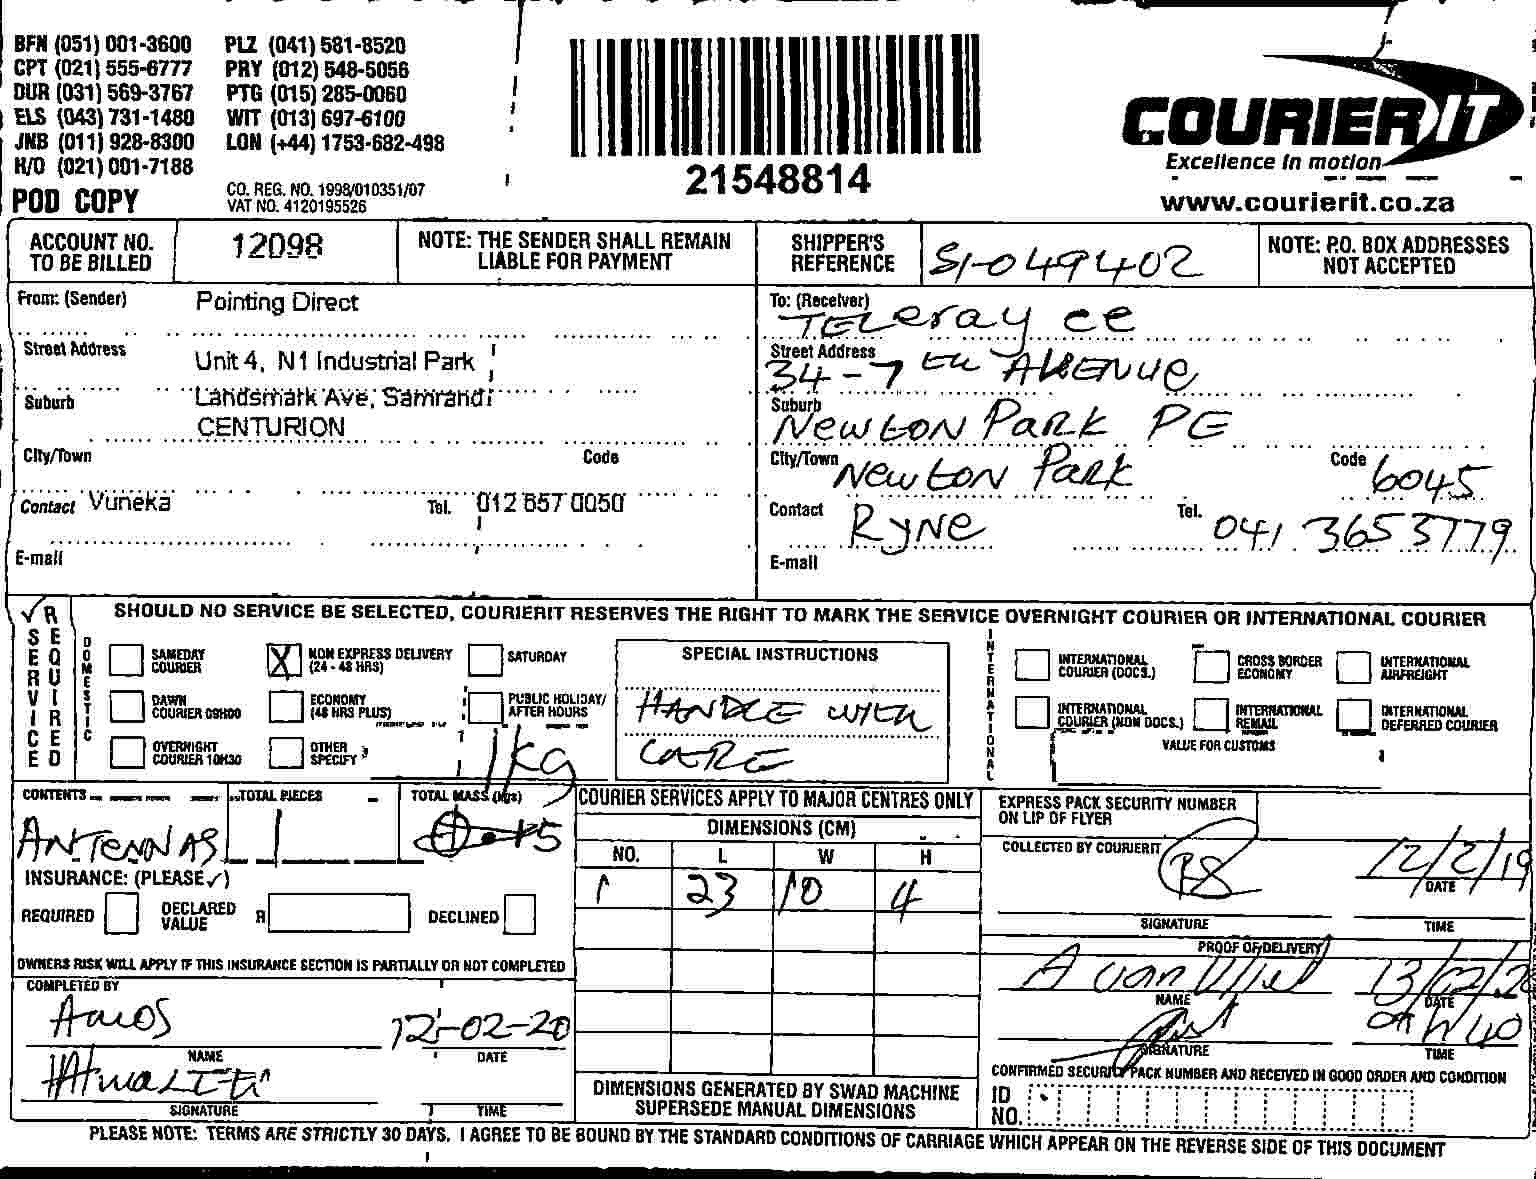 BFN (051) 001-3600 PLZ (041) 581-8520
CPT (021) 555-6777 PRY (012) 548-5056
DUR (031) 569-3767 PTG (015) 285-0060
ELS (043) 731-1480 WIT (013) 697-6100
JNB (011) 928-8300 LON (+44) 1753-682-498
H/O (021) 001-7188
POD COPY
CO. REG. NO. 1998/010351/07
VAT NO. 4120195526
21548814
COURIER IT
Excellence in motion
www.courierit.co.za
ACCOUNT NO. TO BE BILLED
12098
NOTE: THE SENDER SHALL REMAIN LIABLE FOR PAYMENT
SHIPPER'S REFERENCE
SI-049402
NOTE: P.O. BOX ADDRESSES NOT ACCEPTED
From: (Sender) Pointing Direct
Street Address Unit 4, N1 Industrial Park
Suburb Landsmark Ave, Samrand
CENTURION
City/Town Code
Contact Vuneka Tel. 012 657 0050
E-mail
To: (Receiver) TELeray cc
Street Address 34-7th AVENUE
Suburb Newton Park PE
City/Town Newton Park Code 6045
Contact Ryne Tel. 041 3653779
E-mail
SERVICE REQUIRED
SHOULD NO SERVICE BE SELECTED, COURIERIT RESERVES THE RIGHT TO MARK THE SERVICE OVERNIGHT COURIER OR INTERNATIONAL COURIER
DOMESTIC
SAMEDAY COURIER
X NON EXPRESS DELIVERY (24 - 48 HRS)
SATURDAY
DAWN COURIER 09H00
ECONOMY (48 HRS PLUS)
PUBLIC HOLIDAY/ AFTER HOURS
OVERNIGHT COURIER 10H30
OTHER SPECIFY
1kg
SPECIAL INSTRUCTIONS
HANDLE WITH
CARE
INTERNATIONAL
INTERNATIONAL COURIER (DOCS.)
CROSS BORDER ECONOMY
INTERNATIONAL AIRFREIGHT
INTERNATIONAL COURIER (NON DOCS.)
INTERNATIONAL REMAIL
INTERNATIONAL DEFERRED COURIER
VALUE FOR CUSTOMS
CONTENTS
ANTENNAS
TOTAL PIECES
1
TOTAL MASS (Kgs)
INSURANCE: (PLEASE ✓)
REQUIRED DECLARED VALUE R DECLINED
OWNERS RISK WILL APPLY IF THIS INSURANCE SECTION IS PARTIALLY OR NOT COMPLETED
COMPLETED BY
Amos 12-02-20
NAME DATE
SIGNATURE TIME
COURIER SERVICES APPLY TO MAJOR CENTRES ONLY
DIMENSIONS (CM)
NO. L W H
1 23 10 4
DIMENSIONS GENERATED BY SWAD MACHINE
SUPERSEDE MANUAL DIMENSIONS
EXPRESS PACK SECURITY NUMBER ON LIP OF FLYER
COLLECTED BY COURIERIT
12/2/19
DATE
SIGNATURE TIME
PROOF OF DELIVERY
13/02/20
NAME DATE
SIGNATURE TIME
CONFIRMED SECURITY PACK NUMBER AND RECEIVED IN GOOD ORDER AND CONDITION
ID NO.
PLEASE NOTE: TERMS ARE STRICTLY 30 DAYS. I AGREE TO BE BOUND BY THE STANDARD CONDITIONS OF CARRIAGE WHICH APPEAR ON THE REVERSE SIDE OF THIS DOCUMENT